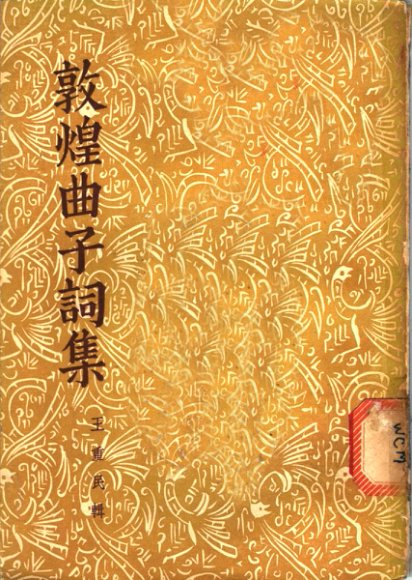 敦煌曲子詞集
王重民輯
WCM